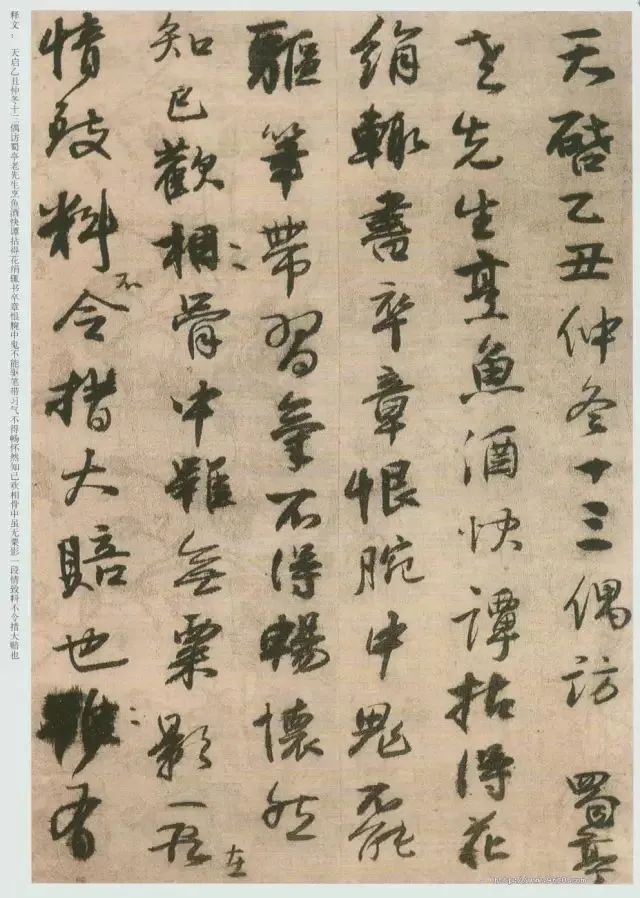 天啟乙丑仲冬十三偶訪 蜀亭
老先生烹魚酒快譚拈得花
絹輙書卒章恨腕中鬼不能
驅筆帶習氣不得暢懷然
知己歡相骨中雖無粟影一段
在
情致料不令措大賠也雖有
释文： 天启乙丑仲冬十三偶访蜀亭老先生烹鱼酒快谭拈得花绢辄书卒章恨腕中鬼不能驱笔带习气不得畅怀然知己欢相骨中虽无粟影一段情致料不令措大赔也